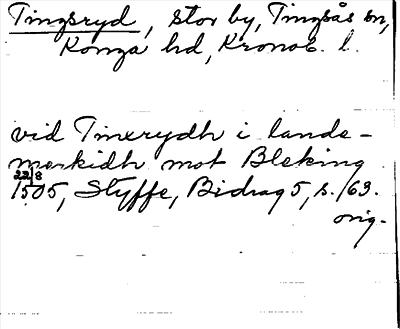 Tingsryd, stor by, Tingsås sn,
Konga hd, Kronob. l.
vid Tinerydh i lande-
merkidh mot Bleking
22/8
1505, Styffe, Bidrag 5, s. 163.
orig.